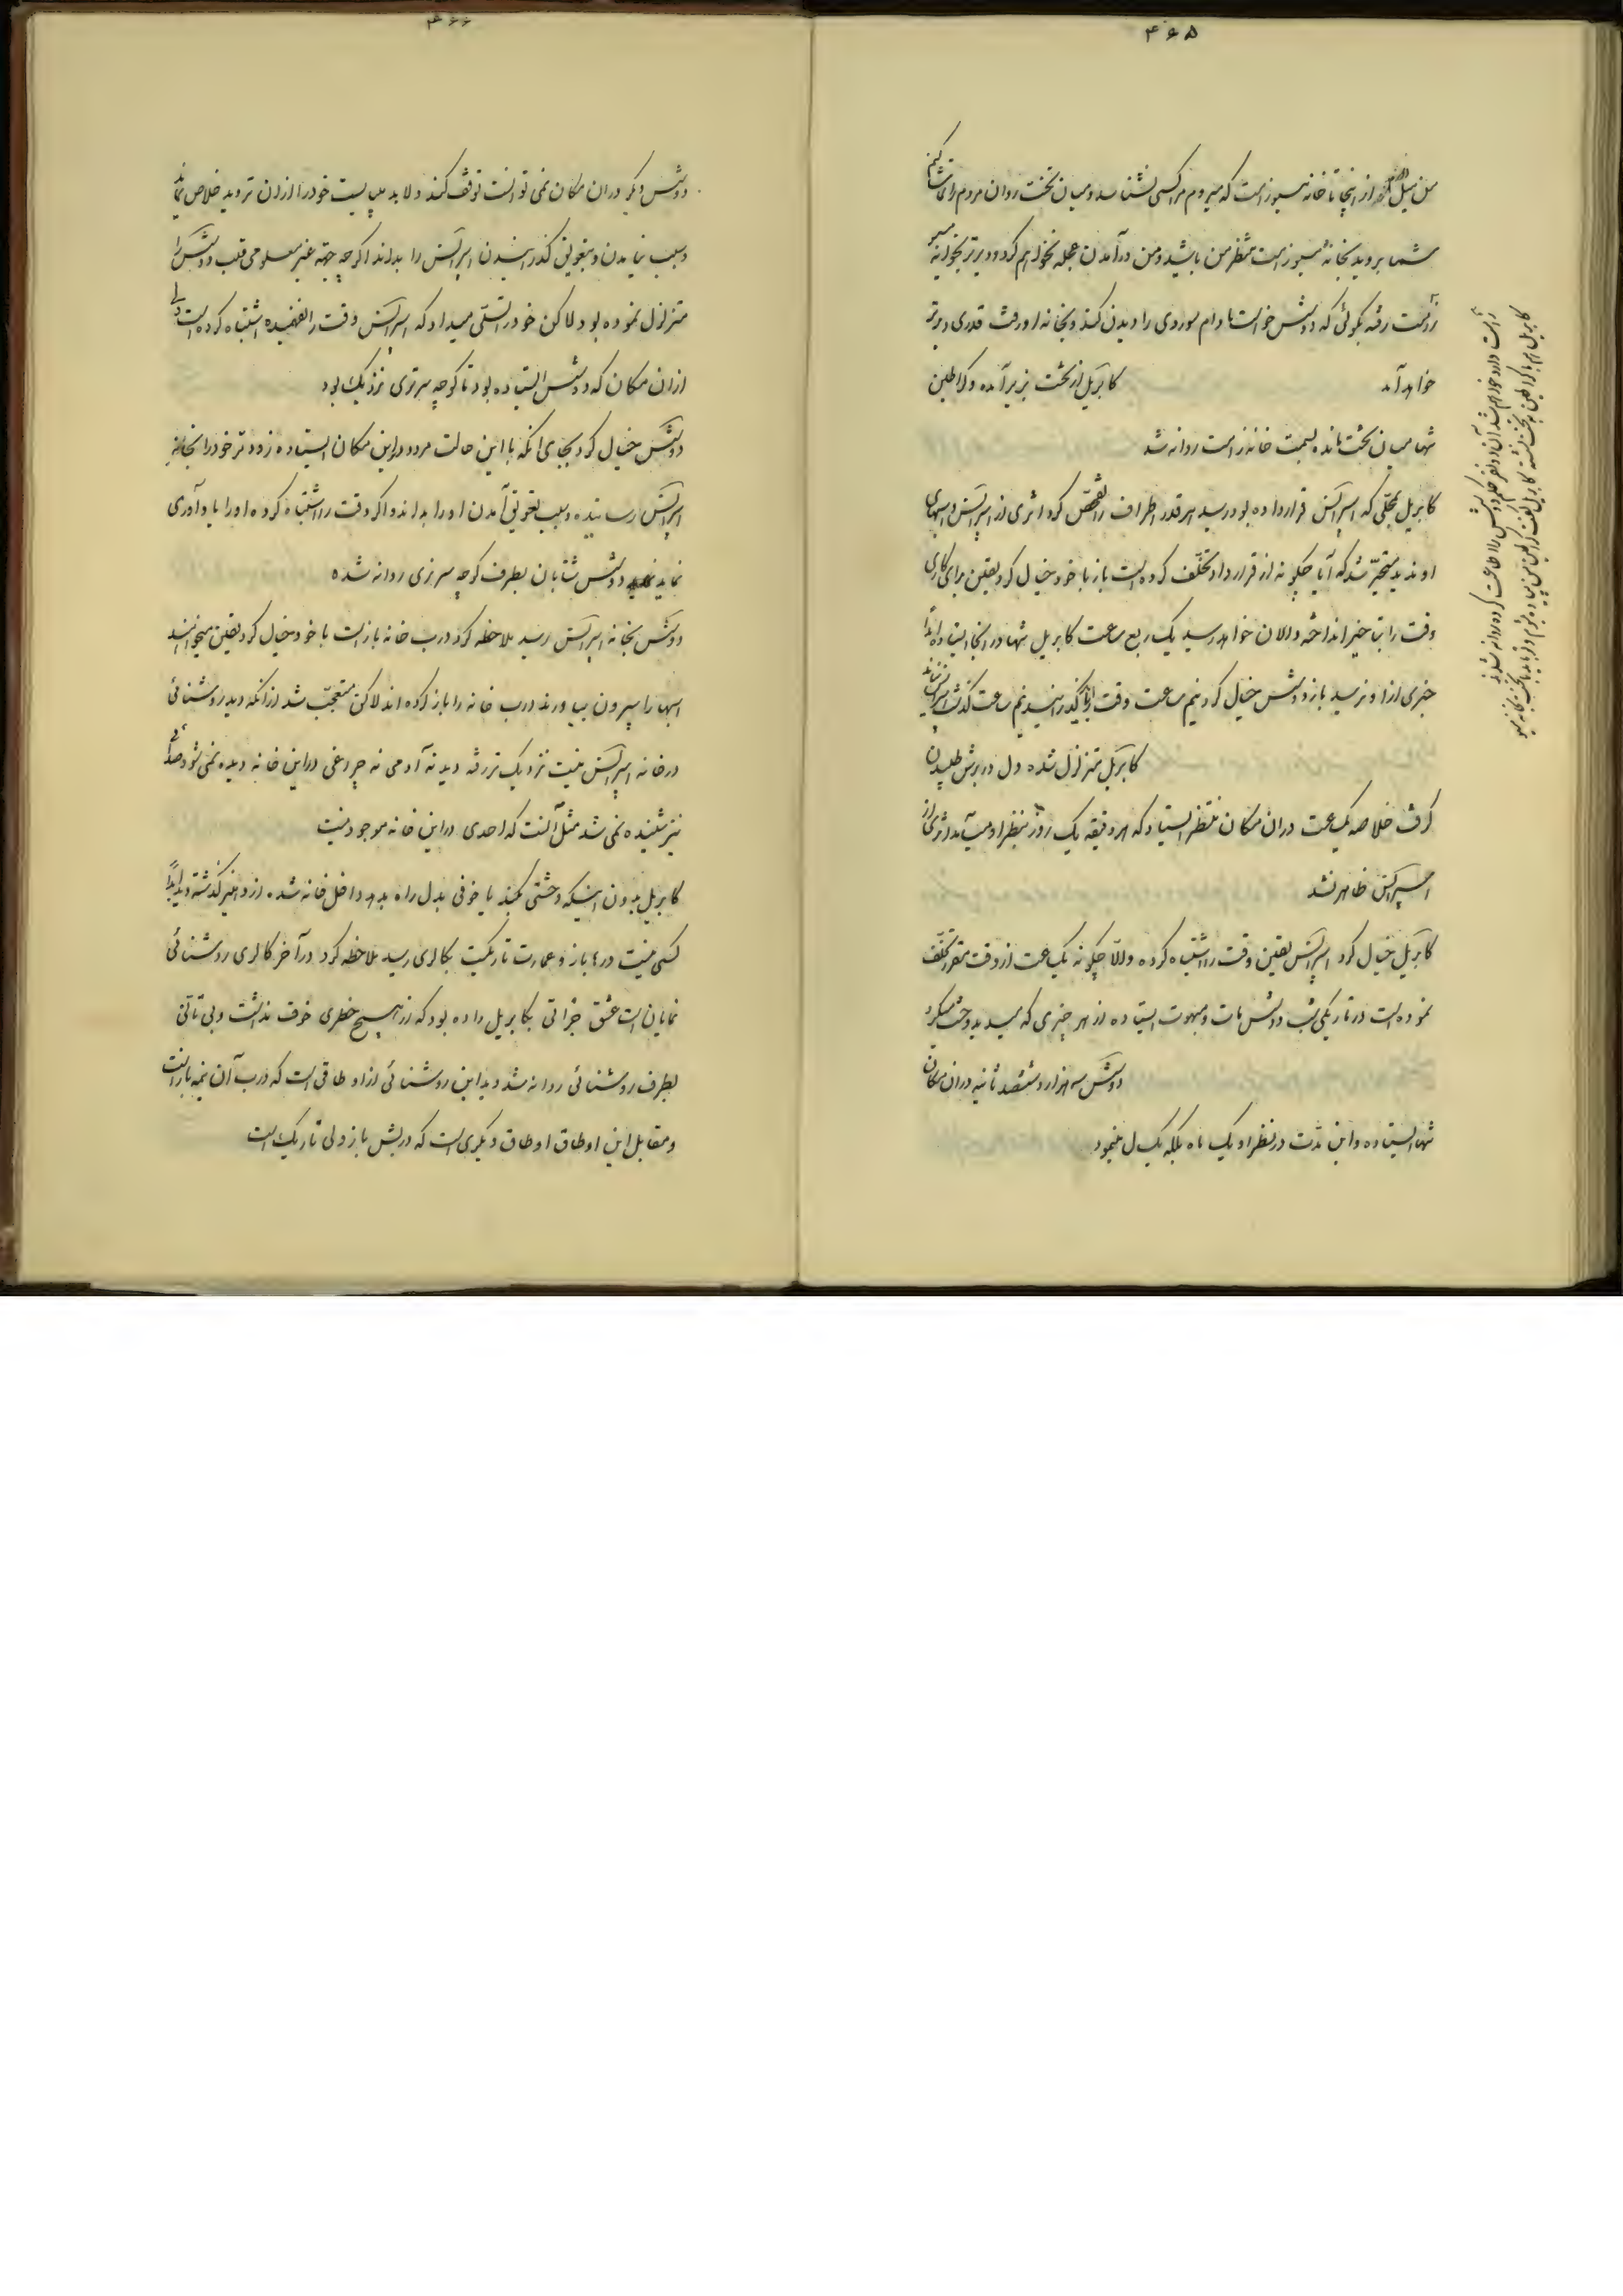 ۴۶۵
من میل دارم از اینجا تا خانه مسیو زامت که میروم مرا کسی نشناسد و میان تخت روان مردم را تماشا کنم
شما بروید بخانه مسیو زامت منتظر من باشید و من در آمدن عجله نخواهم کرد و دیرتر بخوانه مسیو
زامت رفته بگوئی که دوشس خواست مادام سوردی را دیدن کند و بخانه او رفت قدری دیرتر
خواهد آمد کابریل از تخت بزیر آمده و کراطین
تنها میان تخت مانده بسمت خانه زامت روانه شد
کابریل بمحلی که اسپرانس قرار داده بود رسید هر قدر اطراف را تفحص کرد اثری از اسپرانس و اسبهای
او ندید متحیر شد که آیا چگونه از قرارداد تخلف کرده است باز با خود خیال کرد یقین برای کاری
وقت را بتاخیر انداخته و الان خواهد رسید یک ربع ساعت کابریل تنها در انجا ایستاده ابداً
خبری از او نرسید باز دوشس خیال کرد نیم ساعت وقت را گذرانیدیم ساعت گذشت
کابریل متزلزل شده دل در برش طپیدن
گرفت خلاصه یک ساعت در ان مکان منتظر ایستاد که هر دقیقه یک روز بنظر او می‌آمد اثری از
اسپرانس ظاهر نشد
کابریل خیال کرد اسپرانس یقین وقت را اشتباه کرده والا چگونه یک ساعت از وقت مقرر تخلف
نموده است در تاریکی شب دوشس مات و مبهوت ایستاده از هر چیزی که میدید وحشت میکرد
دوشس سه هزار و ششصد ثانیه در ان مکان
تنها ایستاده و این مدت در نظر او یک ماه بلکه یک سال مینمود
زامت دارد خواهم شد آن دو نفر حکم دوشس را اطاعت کرده روانه شدند
کابریل هم با کراطین به تخت نشسته کابریل گفت کراطین من پیاده میشوم و تو باید با تخت بخانه مسیو
۴۶۶
دوشس دیگر در ان مکان نمی توانست توقف کند و لابد می بایست خود را از ان تردید خلاص نماید
و سبب نیامدن و بتعویق گذرانیدن اسپرانس را بداند اگرچه جهة غیر معلومی قلب دوشس را
متزلزل نموده بود لاکن خود را تسلی میداد که اسپرانس وقت را نفهمیده اشتباه کرده است ولی
از ان مکان که دوشس ایستاده بود تا کوچه سرزری نزدیک بود
دوشس خیال کرد بجای انکه با این حالت مردد در این مکان ایستاده زودتر خود را بخانه
اسپرانس رسانیده و سبب تعویق آمدن او را بداند و اگر وقت را اشتباه کرده او را یادآوری
نماید دوشس شتابان بطرف کوچه سرزری روانه شده
دوشس بخانه اسپرانس رسید ملاحظه کرد درب خانه باز است با خود خیال کرد یقین میخواهند
اسبها را بیرون بیاورند درب خانه را باز کرده اند لاکن متعجب شد از انکه دید روشنائی
در خانه اسپرانس نیست نزدیک تر رفته دید نه آدمی نه چراغی در این خانه دیده نمی شود صدائی
نیز شنیده نمی شد مثل آنست که احدی در این خانه موجود نیست
کابریل بدون اینکه وحشتی کند یا خوفی بدل راه بدهد داخل خانه شده از دهلیز گذشته دید ابداً
کسی نیست درها باز و عمارت تاریکست بکالری رسید ملاحظه کرد در آخر کالری روشنائی
نمایان است عشق جرأتی بکابریل داده بود که از هیچ خطری خوف نداشت و بی تأنی
بطرف روشنائی روانه شد دید این روشنائی از اوطاقی است که درب آن نیمه باز است
و مقابل این اوطاق اوطاق دیگری است که دربش باز ولی تاریک است